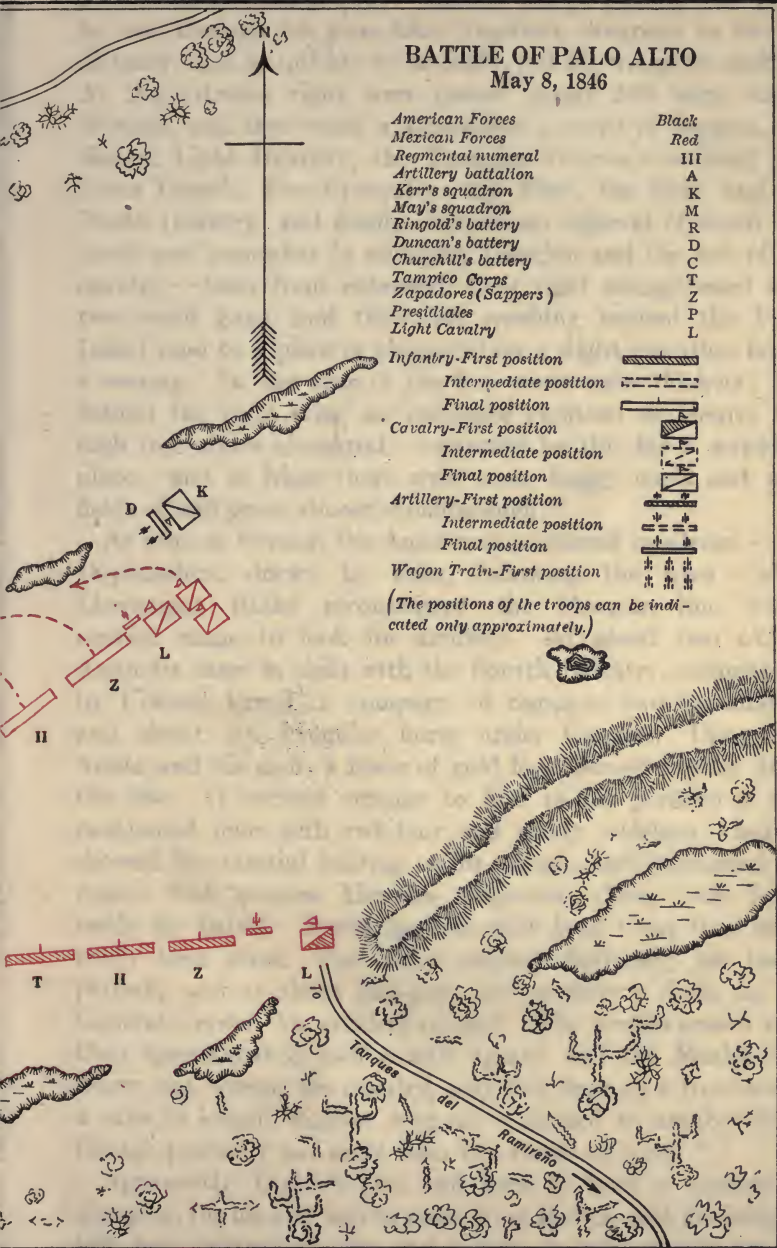 N
BATTLE OF PALO ALTO
May 8, 1846
American Forces Black
Mexican Forces Red
Regmental numeral III
Artillery battalion A
Kerr's squadron K
May's squadron M
Ringold's battery R
Duncan's battery D
Churchill's battery C
Tampico Corps T
Zapadores (Sappers) Z
Presidiales P
Light Cavalry L
Infantry-First position
Intermediate position
Final position
Cavalry-First position
Intermediate position
Final position
Artillery-First position
Intermediate position
Final position
Wagon Train-First position
(The positions of the troops can be indi-
cated only approximately.)
D K
L
Z
II
T II Z L
To
Tanques del Ramireño